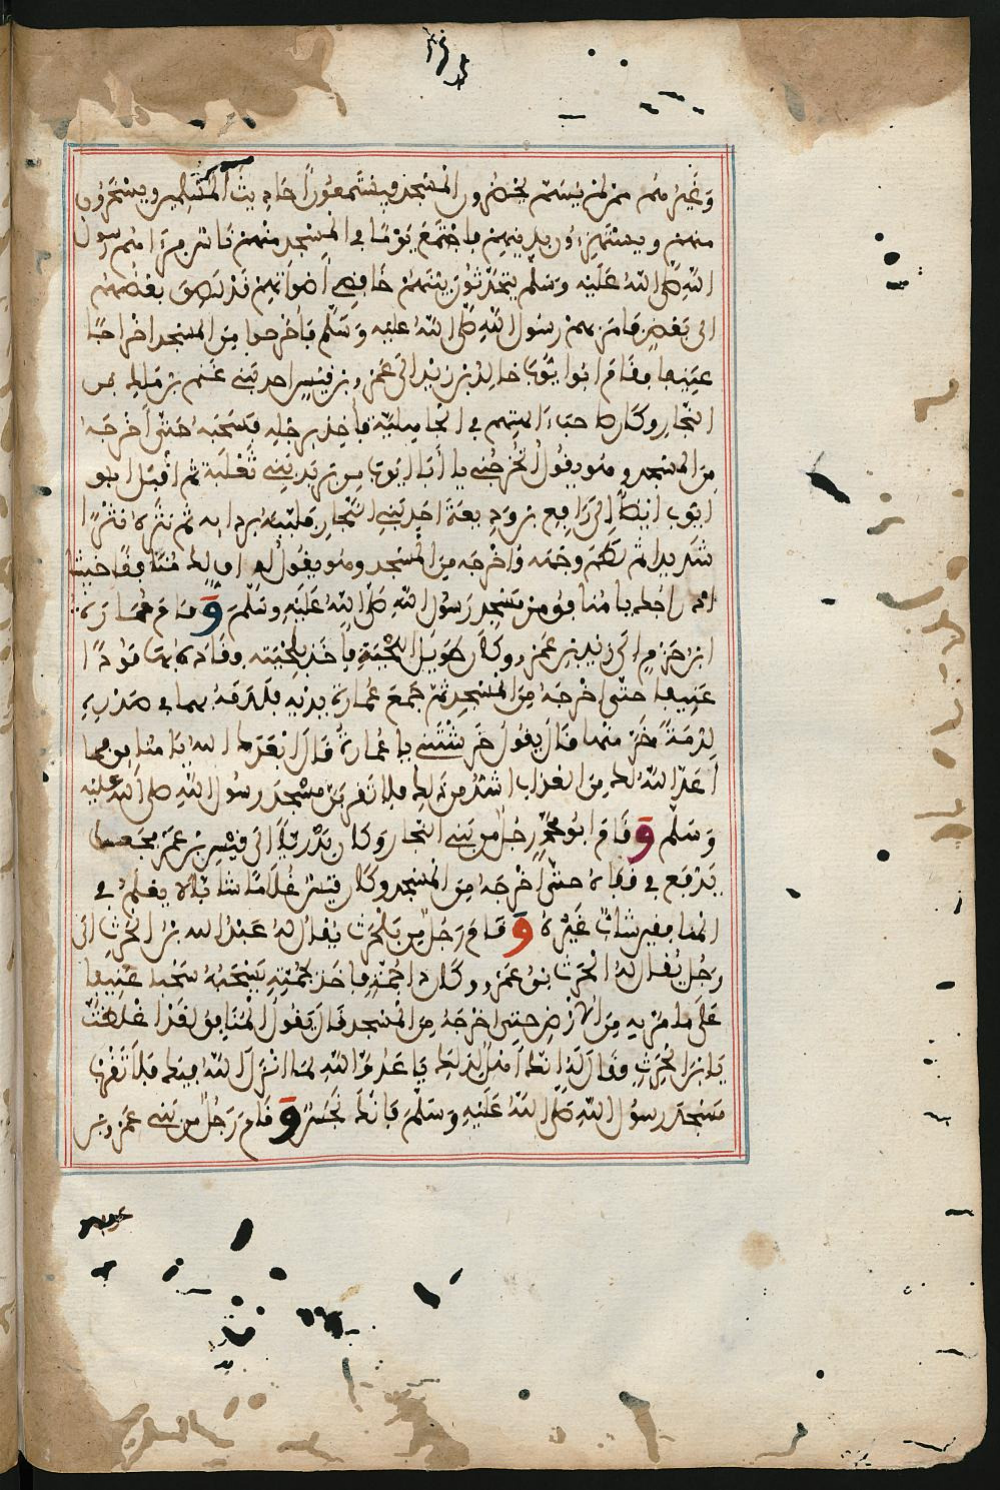 وَغَيْرُهُمْ مِمَّنْ لَمْ يُسَمَّ يَحْضُرُونَ الْمَسْجِدَ فَيَسْتَمِعُونَ أَحَادِيثَ الْمُسْلِمِينَ وَيَسْخَرُونَ
مِنْهُمْ وَيَسْتَهْزِءُونَ بِدِينِهِمْ فَاجْتَمَعَ يَوْمًا فِي الْمَسْجِدِ مِنْهُمْ نَاسٌ فَرَآهُمْ رَسُولُ
اللَّهِ صَلَّى اللَّهُ عَلَيْهِ وَسَلَّمَ يَتَحَدَّثُونَ بَيْنَهُمْ خَافِضِي أَصْوَاتِهِمْ قَدْ لَصِقَ بَعْضُهُمْ
إِلَى بَعْضٍ فَأَمَرَ بِهِمْ رَسُولُ اللَّهِ صَلَّى اللَّهُ عَلَيْهِ وَسَلَّمَ فَأُخْرِجُوا مِنَ الْمَسْجِدِ إِخْرَاجًا
عَنِيفًا فَقَامَ أَبُو أَيُّوبَ خَالِدُ بْنُ زَيْدٍ إِلَى عَمْرِو بْنِ قَيْسٍ أَحَدِ بَنِي غَنْمِ بْنِ مَالِكِ بْنِ
النَّجَّارِ وَكَانَ صَاحِبَ آلِهَتِهِمْ فِي الْجَاهِلِيَّةِ فَأَخَذَ بِرِجْلِهِ فَسَحَبَهُ حَتَّى أَخْرَجَهُ
مِنَ الْمَسْجِدِ وَهُوَ يَقُولُ أَتُخْرِجُنِي يَا أَبَا أَيُّوبَ مِنْ مِرْبَدِ بَنِي ثَعْلَبَةَ ثُمَّ أَقْبَلَ أَبُو
أَيُّوبَ أَيْضًا إِلَى رَافِعِ بْنِ وَدِيعَةَ أَحَدِ بَنِي النَّجَّارِ فَلَبَّبَهُ بِرِدَائِهِ ثُمَّ نَثَرَهُ نَثْرًا
شَدِيدًا ثُمَّ لَطَمَ وَجْهَهُ وَأَخْرَجَهُ مِنَ الْمَسْجِدِ وَهُوَ يَقُولُ لَهُ أُفٍّ لَكَ مُنَافِقًا خَبِيثًا
أَدْرَاجَكَ يَا مُنَافِقُ مِنْ مَسْجِدِ رَسُولِ اللَّهِ صَلَّى اللَّهُ عَلَيْهِ وَسَلَّمَ وَقَامَ عُمَارَةُ
ابْنُ حَزْمٍ إِلَى زَيْدِ بْنِ عَمْرٍو وَكَانَ طَوِيلَ اللِّحْيَةِ فَأَخَذَ بِلِحْيَتِهِ وَقَادَهُ بِهَا قَوْدًا
عَنِيفًا حَتَّى أَخْرَجَهُ مِنَ الْمَسْجِدِ ثُمَّ جَمَعَ عُمَارَةُ يَدَيْهِ فَلَدَمَهُ بِهِمَا فِي صَدْرِهِ
لَدْمَةً خَرَّ مِنْهَا قَالَ يَقُولُ خَدَشْتَنِي يَا عُمَارَةُ قَالَ أَبْعَدَكَ اللَّهُ يَا مُنَافِقُ فَمَا
أَعَدَّ اللَّهُ لَكَ مِنَ الْعَذَابِ أَشَدُّ مِنْ ذَلِكَ فَلَا تَقْرَبَنَّ مَسْجِدَ رَسُولِ اللَّهِ صَلَّى اللَّهُ عَلَيْهِ
وَسَلَّمَ وَقَامَ أَبُو مُحَمَّدٍ رَجُلٌ مِنْ بَنِي النَّجَّارِ وَكَانَ بَدْرِيًّا إِلَى قَيْسِ بْنِ عَمْرٍو فَجَعَلَ
يَدْفَعُ فِي قَفَاهُ حَتَّى أَخْرَجَهُ مِنَ الْمَسْجِدِ وَكَانَ قَيْسٌ غُلَامًا شَابًّا لَا يُعْلَمُ فِي
الْمُنَافِقِينَ شَابٌّ غَيْرُهُ وَقَامَ رَجُلٌ مِنْ بَلْحَرْثِ يُقَالُ لَهُ عَبْدُ اللَّهِ بْنُ الْحَرْثِ إِلَى
رَجُلٍ يُقَالُ لَهُ الْحَرْثُ بْنُ عَمْرٍو وَكَانَ ذَا جُمَّةٍ فَأَخَذَ بِجُمَّتِهِ يَسْحَبُهُ سَحْبًا عَنِيفًا
عَلَى مَا مَرَّ بِهِ مِنَ الْأَرْضِ حَتَّى أَخْرَجَهُ مِنَ الْمَسْجِدِ قَالَ يَقُولُ الْمُنَافِقُ لَقَدْ أَغْلَظْتَ
يَا بْنَ الْحَرْثِ فَقَالَ لَهُ إِنَّكَ أَهْلٌ لِذَلِكَ يَا عَدُوَّ اللَّهِ لِمَا أَنْزَلَ اللَّهُ فِيكَ فَلَا تَقْرَبْ
مَسْجِدَ رَسُولِ اللَّهِ صَلَّى اللَّهُ عَلَيْهِ وَسَلَّمَ فَإِنَّكَ نَجَسٌ وَقَامَ رَجُلٌ مِنْ بَنِي عَمْرِو بْنِ